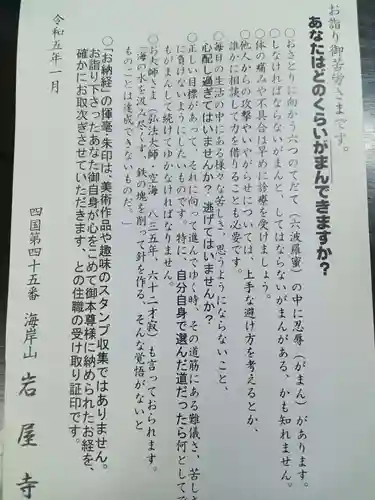 お詣り御苦労さまです。
あなたはどのくらいがまんできますか？
○おさとりに向かう六つのてだて（六波羅蜜）の中に忍辱（がまん）があります。
○しなければならないがまんと、してはならないがまんがある、かも知れません。
○体の痛みや不具合は早めに診療を受けましょう。
○他人からの攻撃やいやがらせについては、上手な避け方を考えるとか、
誰かに相談して力を借りることも必要です。
○毎日の生活の中にある様々な苦しさ、思うようにならないこと、
心配し過ぎてはいませんか？逃げてはいませんか？
○正しい目標があって、それに向って進んでゆく時、その道筋にある難儀さ、苦しさ
に負けないようにしたいものです。特に、自分自身で選んだ道だったら何としても
もがまんし続けてゆかなければなりません。
○お大師さま（弘法大師・空海 八三五年、六十二才寂）も言っておられます。
「海の水を汲み尽くす、鉄の塊を削って針を作る、そんな覚悟がないと
ものごとは達成できないものだ。」
○「お納経」の揮毫・朱印は、美術作品や趣味のスタンプ収集ではありません。
お詣り下さったあなた御自身が心をこめて御本尊様に納められたお経を、
確かにお取次ぎさせていただきます、との住職の受け取り証印です。
令和五年一月
四国第四十五番 海岸山 岩屋寺